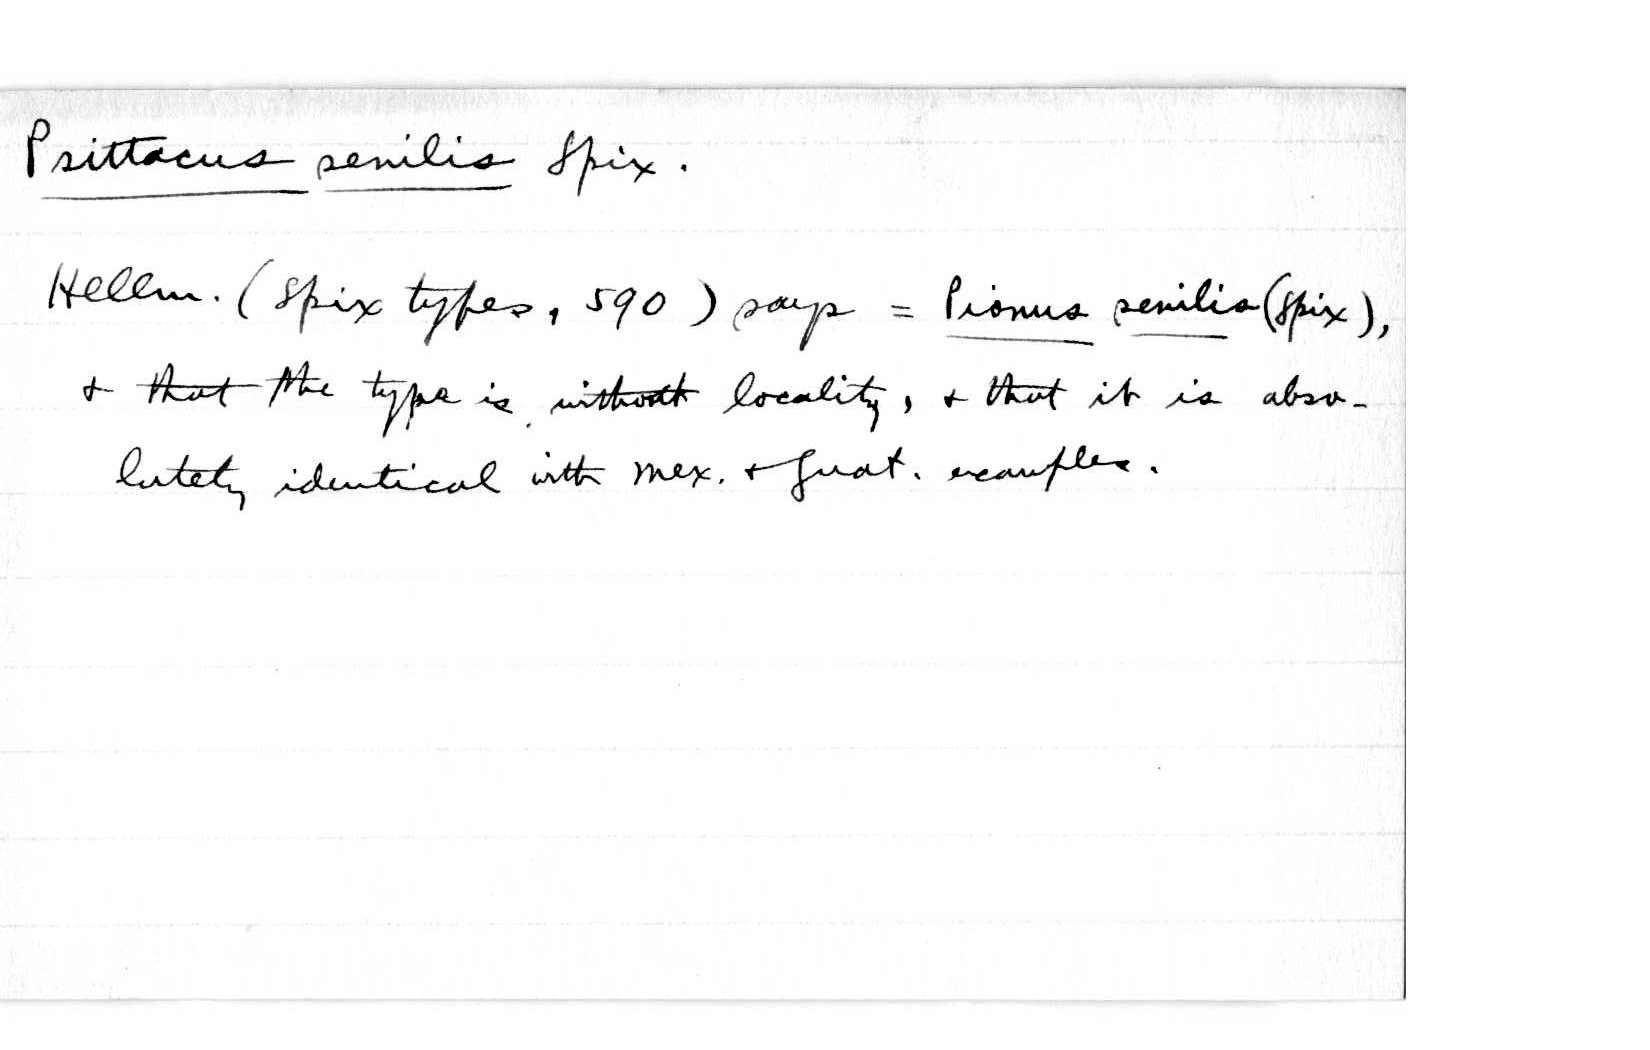 Psittacus senilis Spix.
Hellm. (Spix types, 590) says = Pionus senilis (Spix),
& that the type is without locality, & that it is abso-
lutely identical with Mex. & Guat. examples.